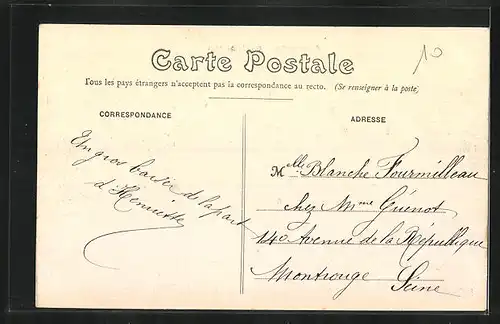 10
Carte Postale
Tous les pays étrangers n'acceptent pas la correspondance au recto. (Se renseigner à la poste)
CORRESPONDANCE
ADRESSE
Un gros baiser de la part
d'Henriette
Mlle Blanche Fourmilleau
chez Mme Guénot
140 Avenue de la République
Montrouge Seine